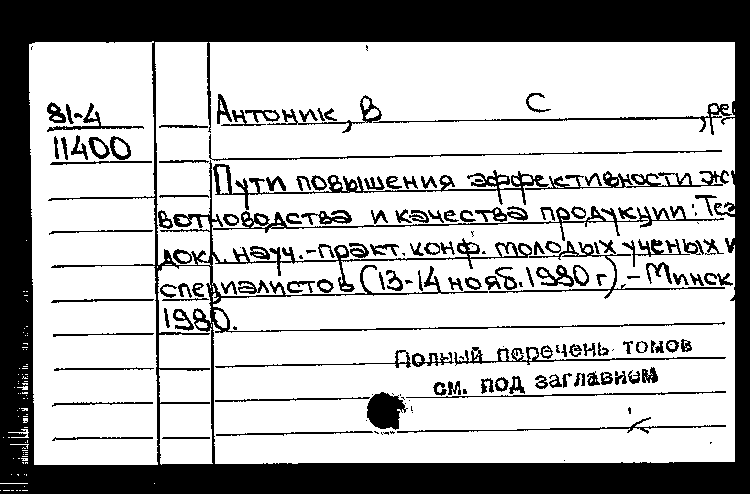 81-4
11400
Антоник, В С , ред
Пути повышения эффективности жи
вотноводства и качества продукции: Тез
докл. науч.-практ. конф. молодых ученых и
специалистов (13-14 нояб. 1980 г). - Минск,
1980.
Полный перечень томов
см. под заглавием